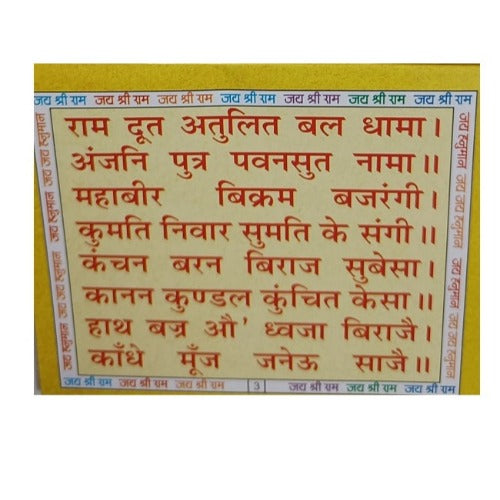 जय श्री राम जय श्री राम जय श्री राम जय श्री राम जय श्री राम जय श्री राम जय श्री राम
राम दूत अतुलित बल धामा।
अंजनि पुत्र पवनसुत नामा॥
महाबीर बिक्रम बजरंगी।
कुमति निवार सुमति के संगी॥
कंचन बरन बिराज सुबेसा।
कानन कुण्डल कुंचित केसा॥
हाथ बज्र औ' ध्वजा बिराजै।
काँधे मूँज जनेऊ साजै॥
जय श्री राम जय श्री राम जय श्री राम 3 जय श्री राम जय श्री राम जय श्री राम
जय हनुमान जय जय हनुमान जय जय हनुमान
जय हनुमान जय जय हनुमान जय जय हनुमान